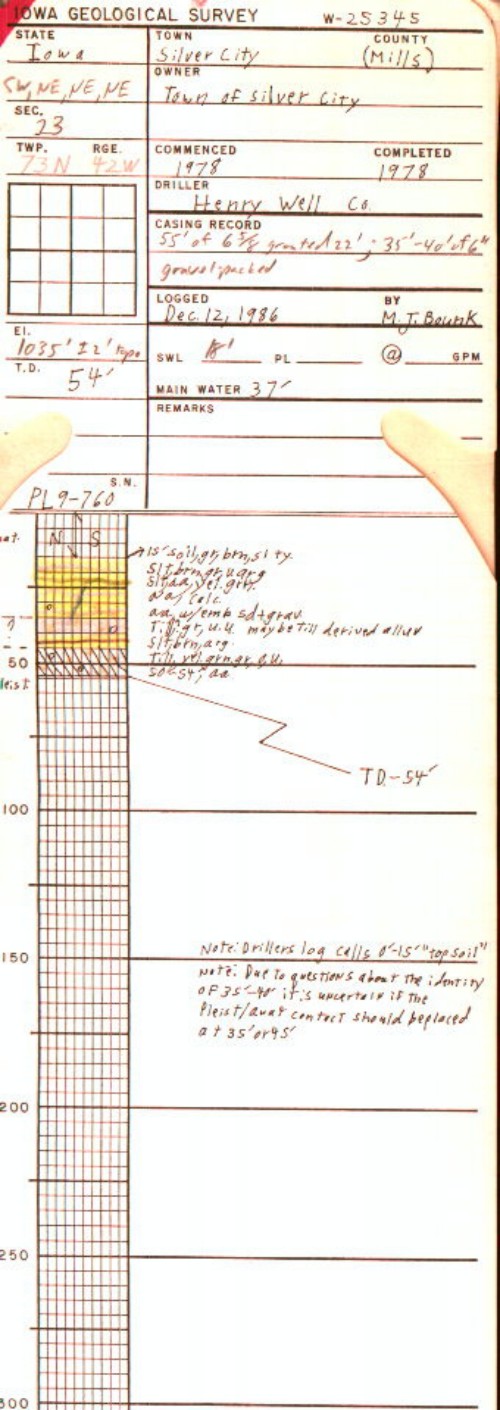 IOWA GEOLOGICAL SURVEY W-25345
STATE
Iowa
TOWN
Silver City
COUNTY
(Mills)
SW, NE, NE, NE
OWNER
Town of Silver City
SEC.
23
TWP. RGE.
73N 42W
COMMENCED
1978
COMPLETED
1978
DRILLER
Henry Well Co.
CASING RECORD
55' of 6 5/8 grouted 22'; 35'-40' of 6"
gravel packed
LOGGED
Dec. 12, 1986
BY
M.J. Bounk
El.
1035' ±2' topo
SWL 18' PL @ GPM
T.D.
54'
MAIN WATER 37'
REMARKS
S.N.
PL9-760
N S
15' soil, gr, brn, slty.
Slt, brn, gr, u, arg
Slt, aa, yel, grn.
aa/ calc.
aa w/emb sd+grav
Till, gr, u.u. maybe till derived alluv
Slt, brn, arg.
Till, yel, grn, gr, o, u.
50-54', aa
50
leist
TD-54'
100
Note: Drillers log calls 0'-15' "top soil"
150
Note: Due to questions about the identity
OF 35'-40' it is uncertain if the
Pleist/quat contact should be placed
at 35' or 45'
200
250
300